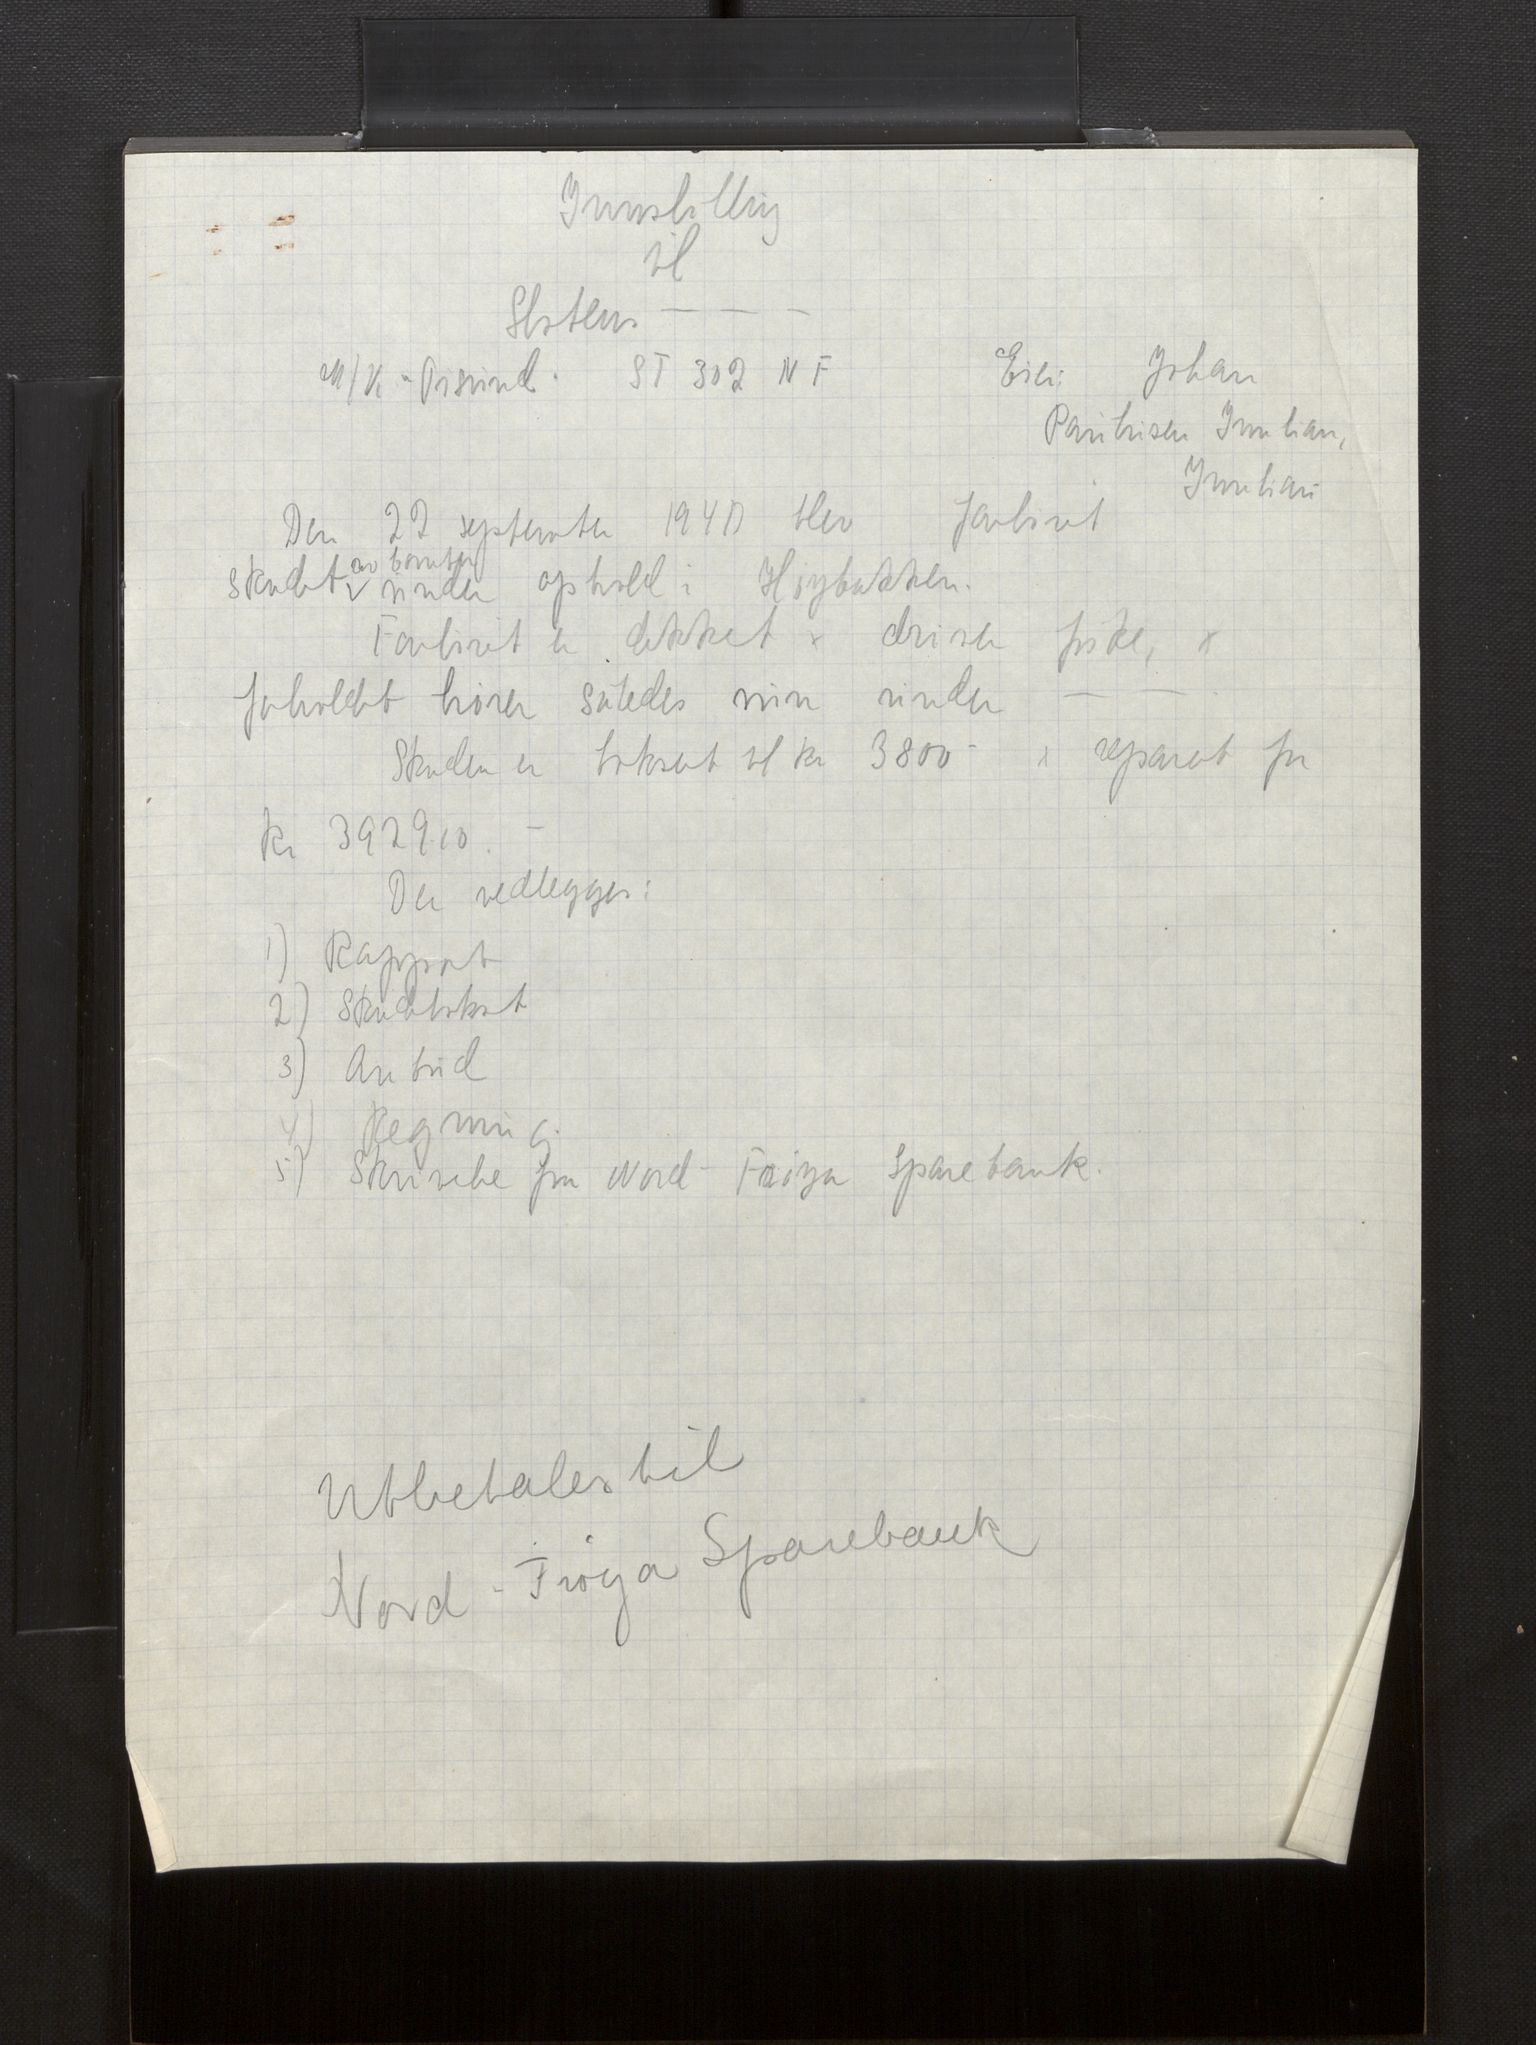 Innstilling
til
Statens — — —
M/K "Ørsund" ST 302 NF Eier: Johan
Paulsen Inntian,
Inntian
Den 22 september 1940 blev fartøiet
skadet av bomber under ophold i Høybakken.
Fartøiet er dekket x driver fiske, x
forholdet hører således inn under — —
Skaden er taksert til kr 3800- x reparert for
kr 3929.10. –
Der vedlegges:
1) Rapport
2) Skadetakst
3) Anbud
4) Regning.
5) Skrivelse fra Nord-Frøya Sparebank.
Utbetales til
Nord-Frøya Sparebank